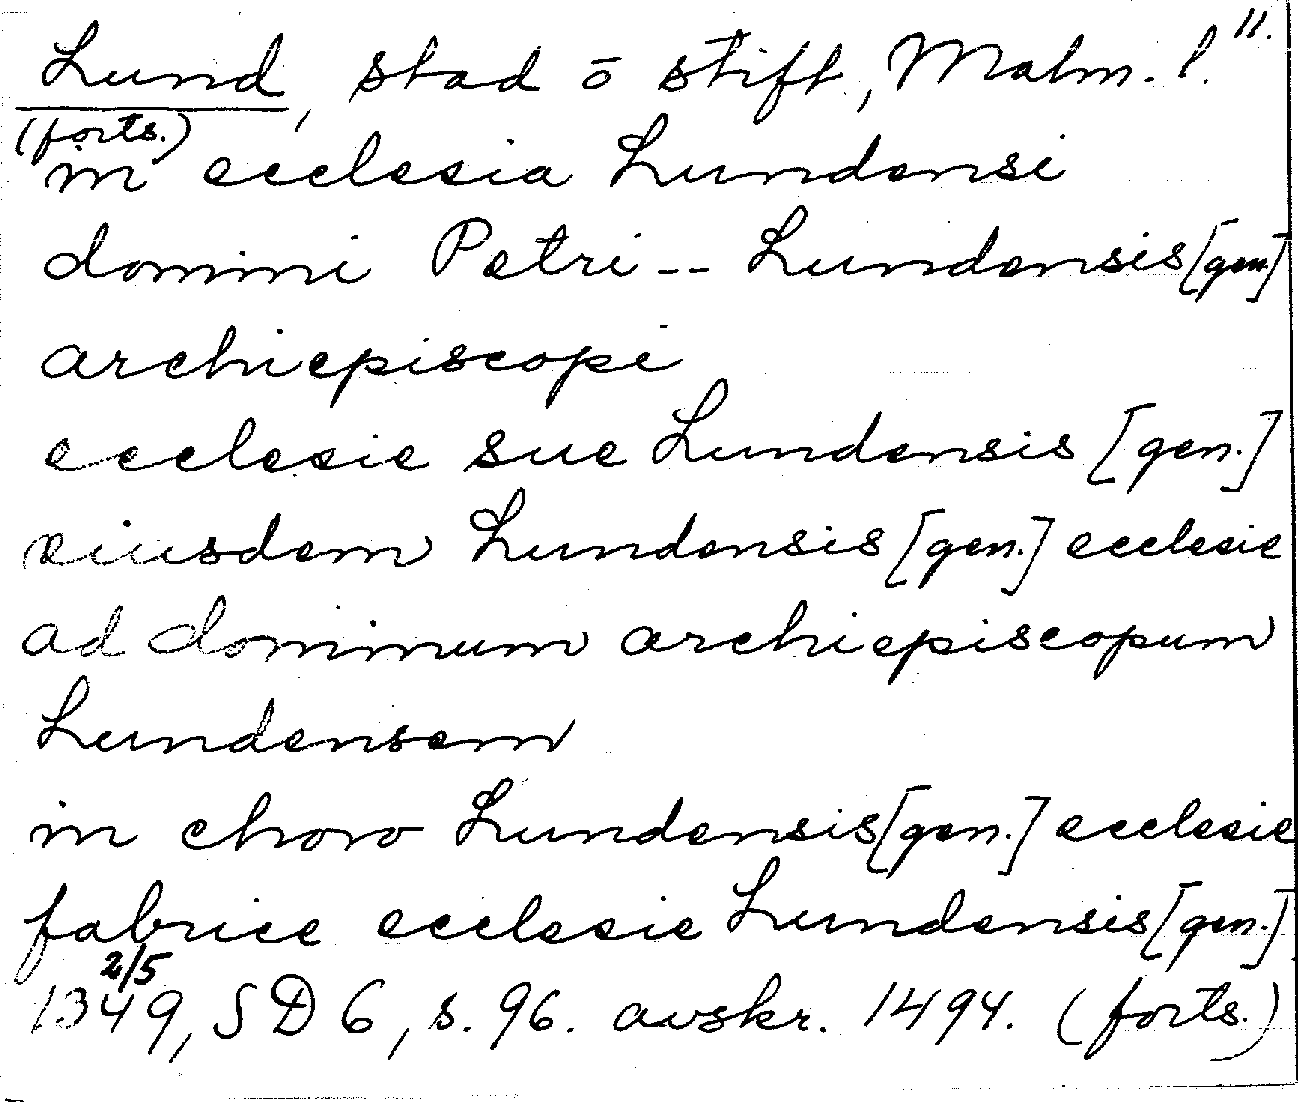 11.
Lund, stad ō stift, Malm. l.
(forts.)
in ecclesia Lundensi
domini Petri -- Lundensis [gen.]
archiepiscopi
ecclesie sue Lundensis [gen.]
eiusdem Lundensis [gen.] ecclesie
ad dominum archiepiscopum
Lundensem
in choro Lundensis [gen.] ecclesie
fabrice ecclesie Lundensis [gen.]
2/5
1349, SD 6, s. 96. avskr. 1494. (forts.)